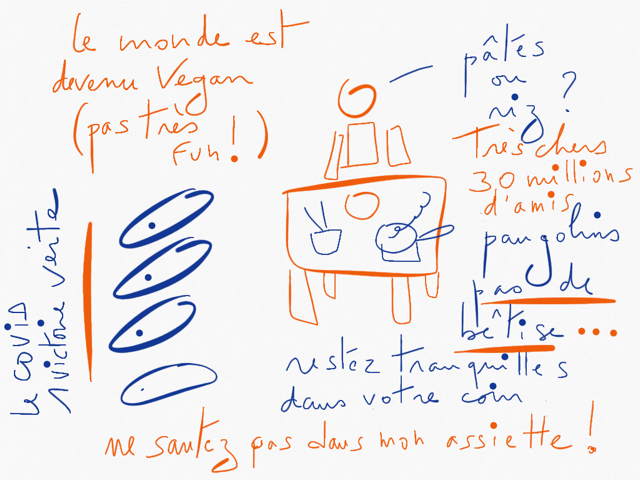 le monde est
devenu Vegan
(pas très
Fun !)
pâtés
ou
riz ?
Très chers
30 millions
d'amis
pangolins
pas de
bêtise ...
restez tranquilles
dans votre coin
ne sautez pas dans mon assiette !
le covid
1 victoire verte